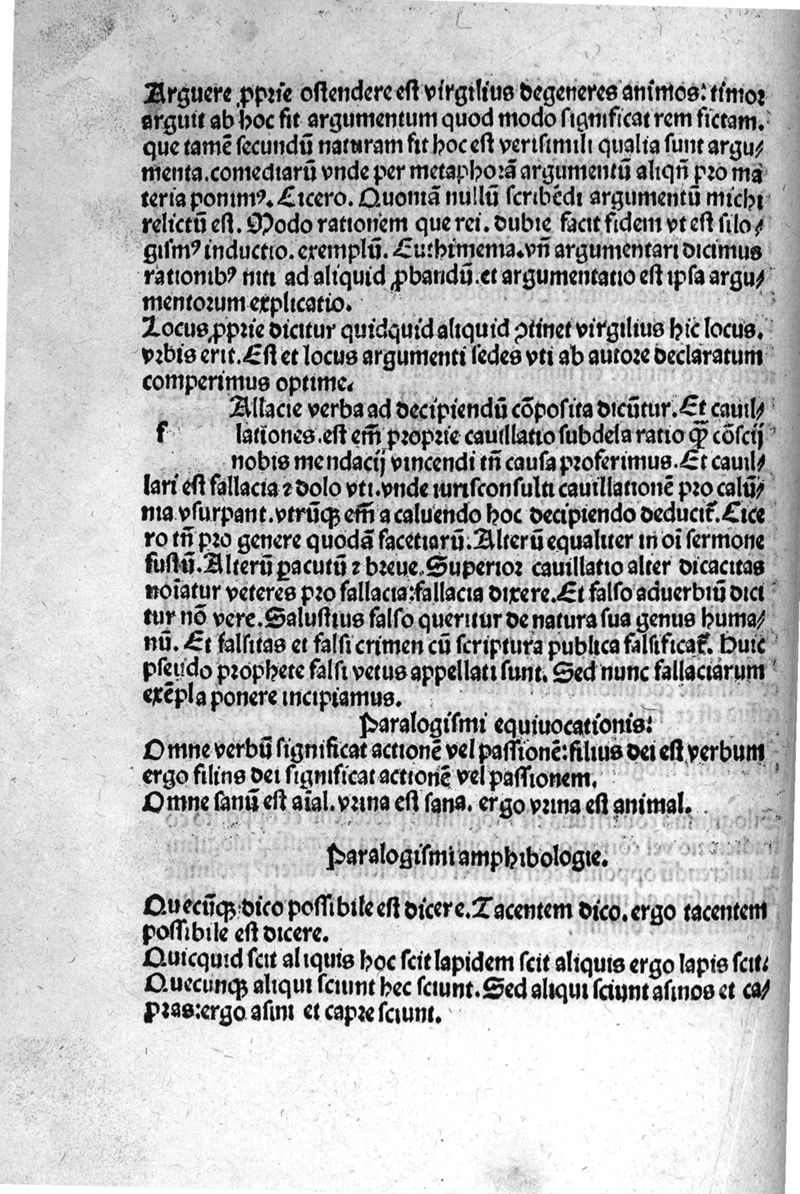 Arguere ꝓprie ostendere est virgilius degeneres animos: timor
arguit ab hoc fit argumentum quod modo significat rem fictam.
que tamē secundū naturam fit hoc est verisimili qualia sunt argu⸗
menta.comediarū vnde per metaphorā argumentū aliqn̄ pro ma
teria ponimꝰ. Cicero. Quoniā nullū scribēdi argumentū michi
relictū est. Modo rationem que rei. dubie facit fidem vt est silo⸗
gismꝰ inductio. exemplū. Euthimema.vn̄ argumentari dicimus
rationibꝰ niti ad aliquid ꝓbandū.et argumentatio est ipsa argu⸗
mentorum explicatio.
Locus ꝓprie dicitur quidquid aliquid ꝯtinet virgilius hic locus.
vrbis erit. Est et locus argumenti sedes vti ab autore declaratum
comperimus optime.
Allacie verba ad decipiendū cōposita dicūtur. Et cauil⸗
f lationes.est em̄ proprie cauillatio subdela ratio qȝ cōscij
nobis mendacij vincendi tn̄ causa proferimus. Et cauil⸗
lari est fallacia ⁊ dolo vti.vnde iurisconsulti cauillationē pro calū⸗
nia vsurpant.vtrūqȝ em̄ a caluendo hoc decipiendo deducit᷑. Cice
ro tn̄ pro genere quodā facetiarū. Alterū equaliter in oī sermone
fusū. Alterū ꝑacutū ⁊ breue. Superior cauillatio alter dicacitas
noīatur veteres pro fallacia:fallacia dixere. Et falso aduerbiū dici
tur nō vere. Salustius falso queritur de natura sua genus huma⸗
nū. Et falsitas et falsi crimen cū scriptura publica falsificat᷑. Huic
pseudo prophete falsi vetus appellati sunt. Sed nunc fallaciarum
exēpla ponere incipiamus.
Paralogismi equiuocationis:
Omne verbū significat actionē vel passionē:filius dei est verbum
ergo filius dei significat actionē vel passionem.
Omne sanū est aīal. vrina est sana. ergo vrina est animal.
Paralogismi amphibologie.
Quecūqȝ dico possibile est dicere. Tacentem dico. ergo tacentem
possibile est dicere.
Quicquid scit aliquis hoc scit lapidem scit aliquis ergo lapis scit:
Quecunqȝ aliqui sciunt hec sciunt. Sed aliqui sciunt asinos et ca⸗
pras:ergo asini et capre sciunt.